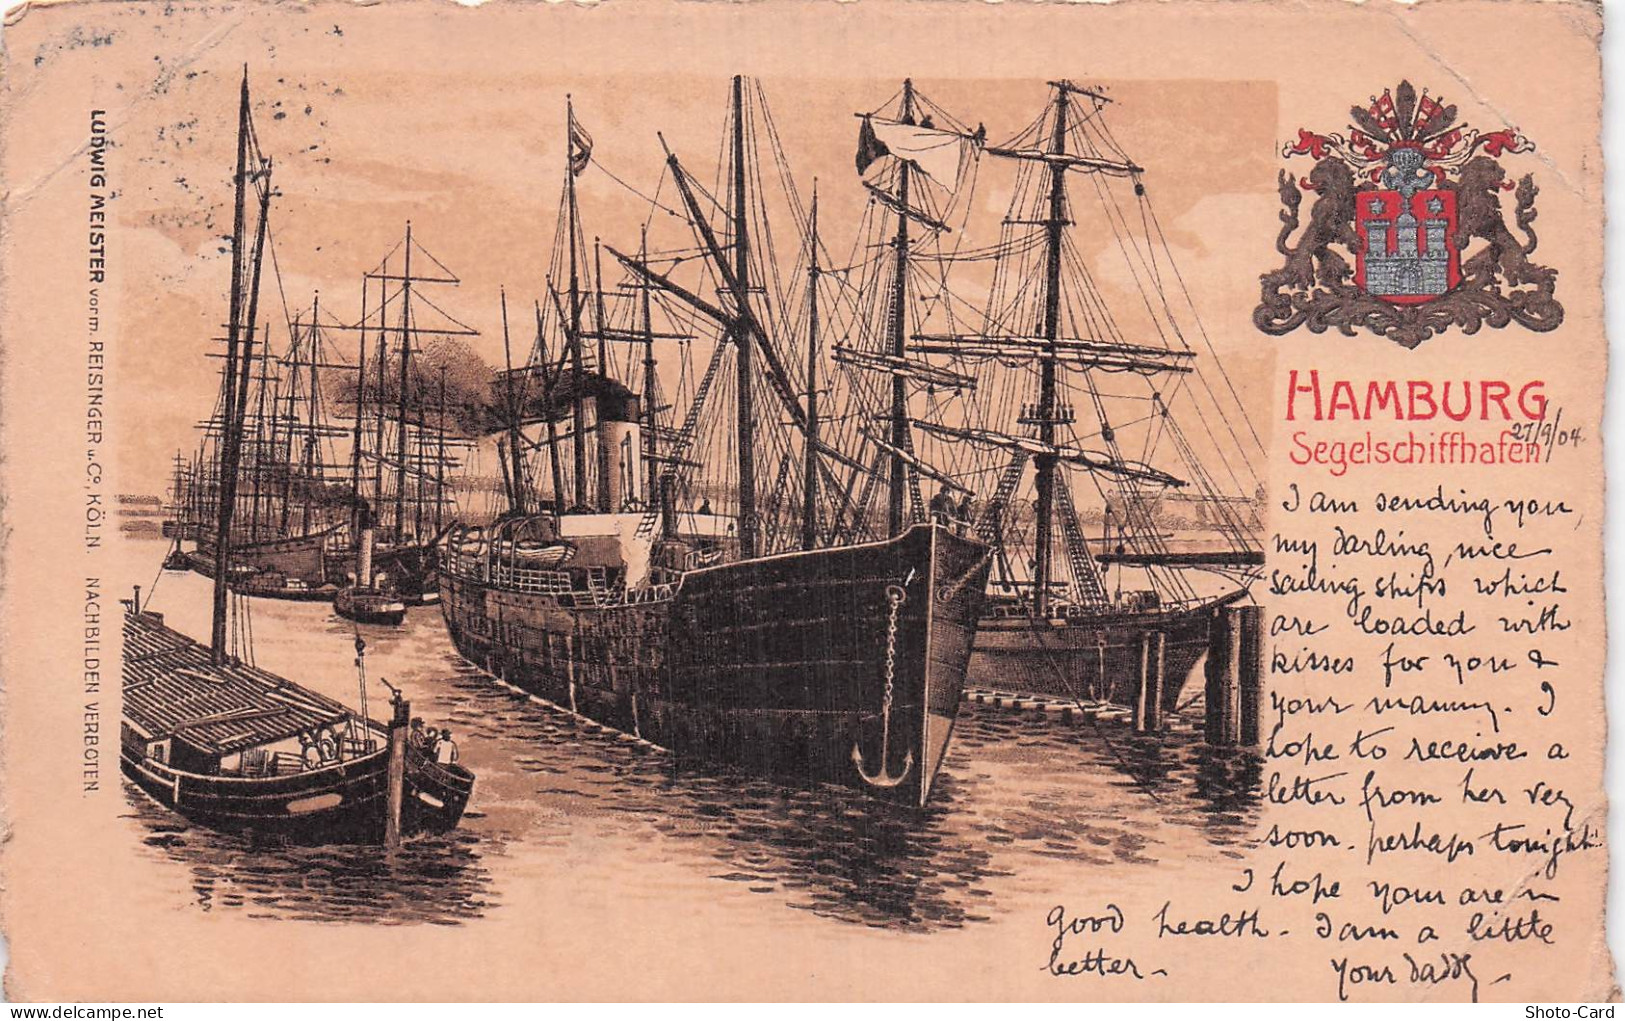 LUDWIG MEISTER vorm. REISINGER u. Co, KÖLN NACHBILDEN VERBOTEN.
HAMBURG
Segelschiffhafen
27/9/04.
I am sending you,
my darling, nice
sailing ships which
are loaded with
kisses for you &
your mammy. I
hope to receive a
letter from her very
soon. perhaps tonight!!
I hope your are in
good health. I am a little
better.
your daddy.
Shoto-Card